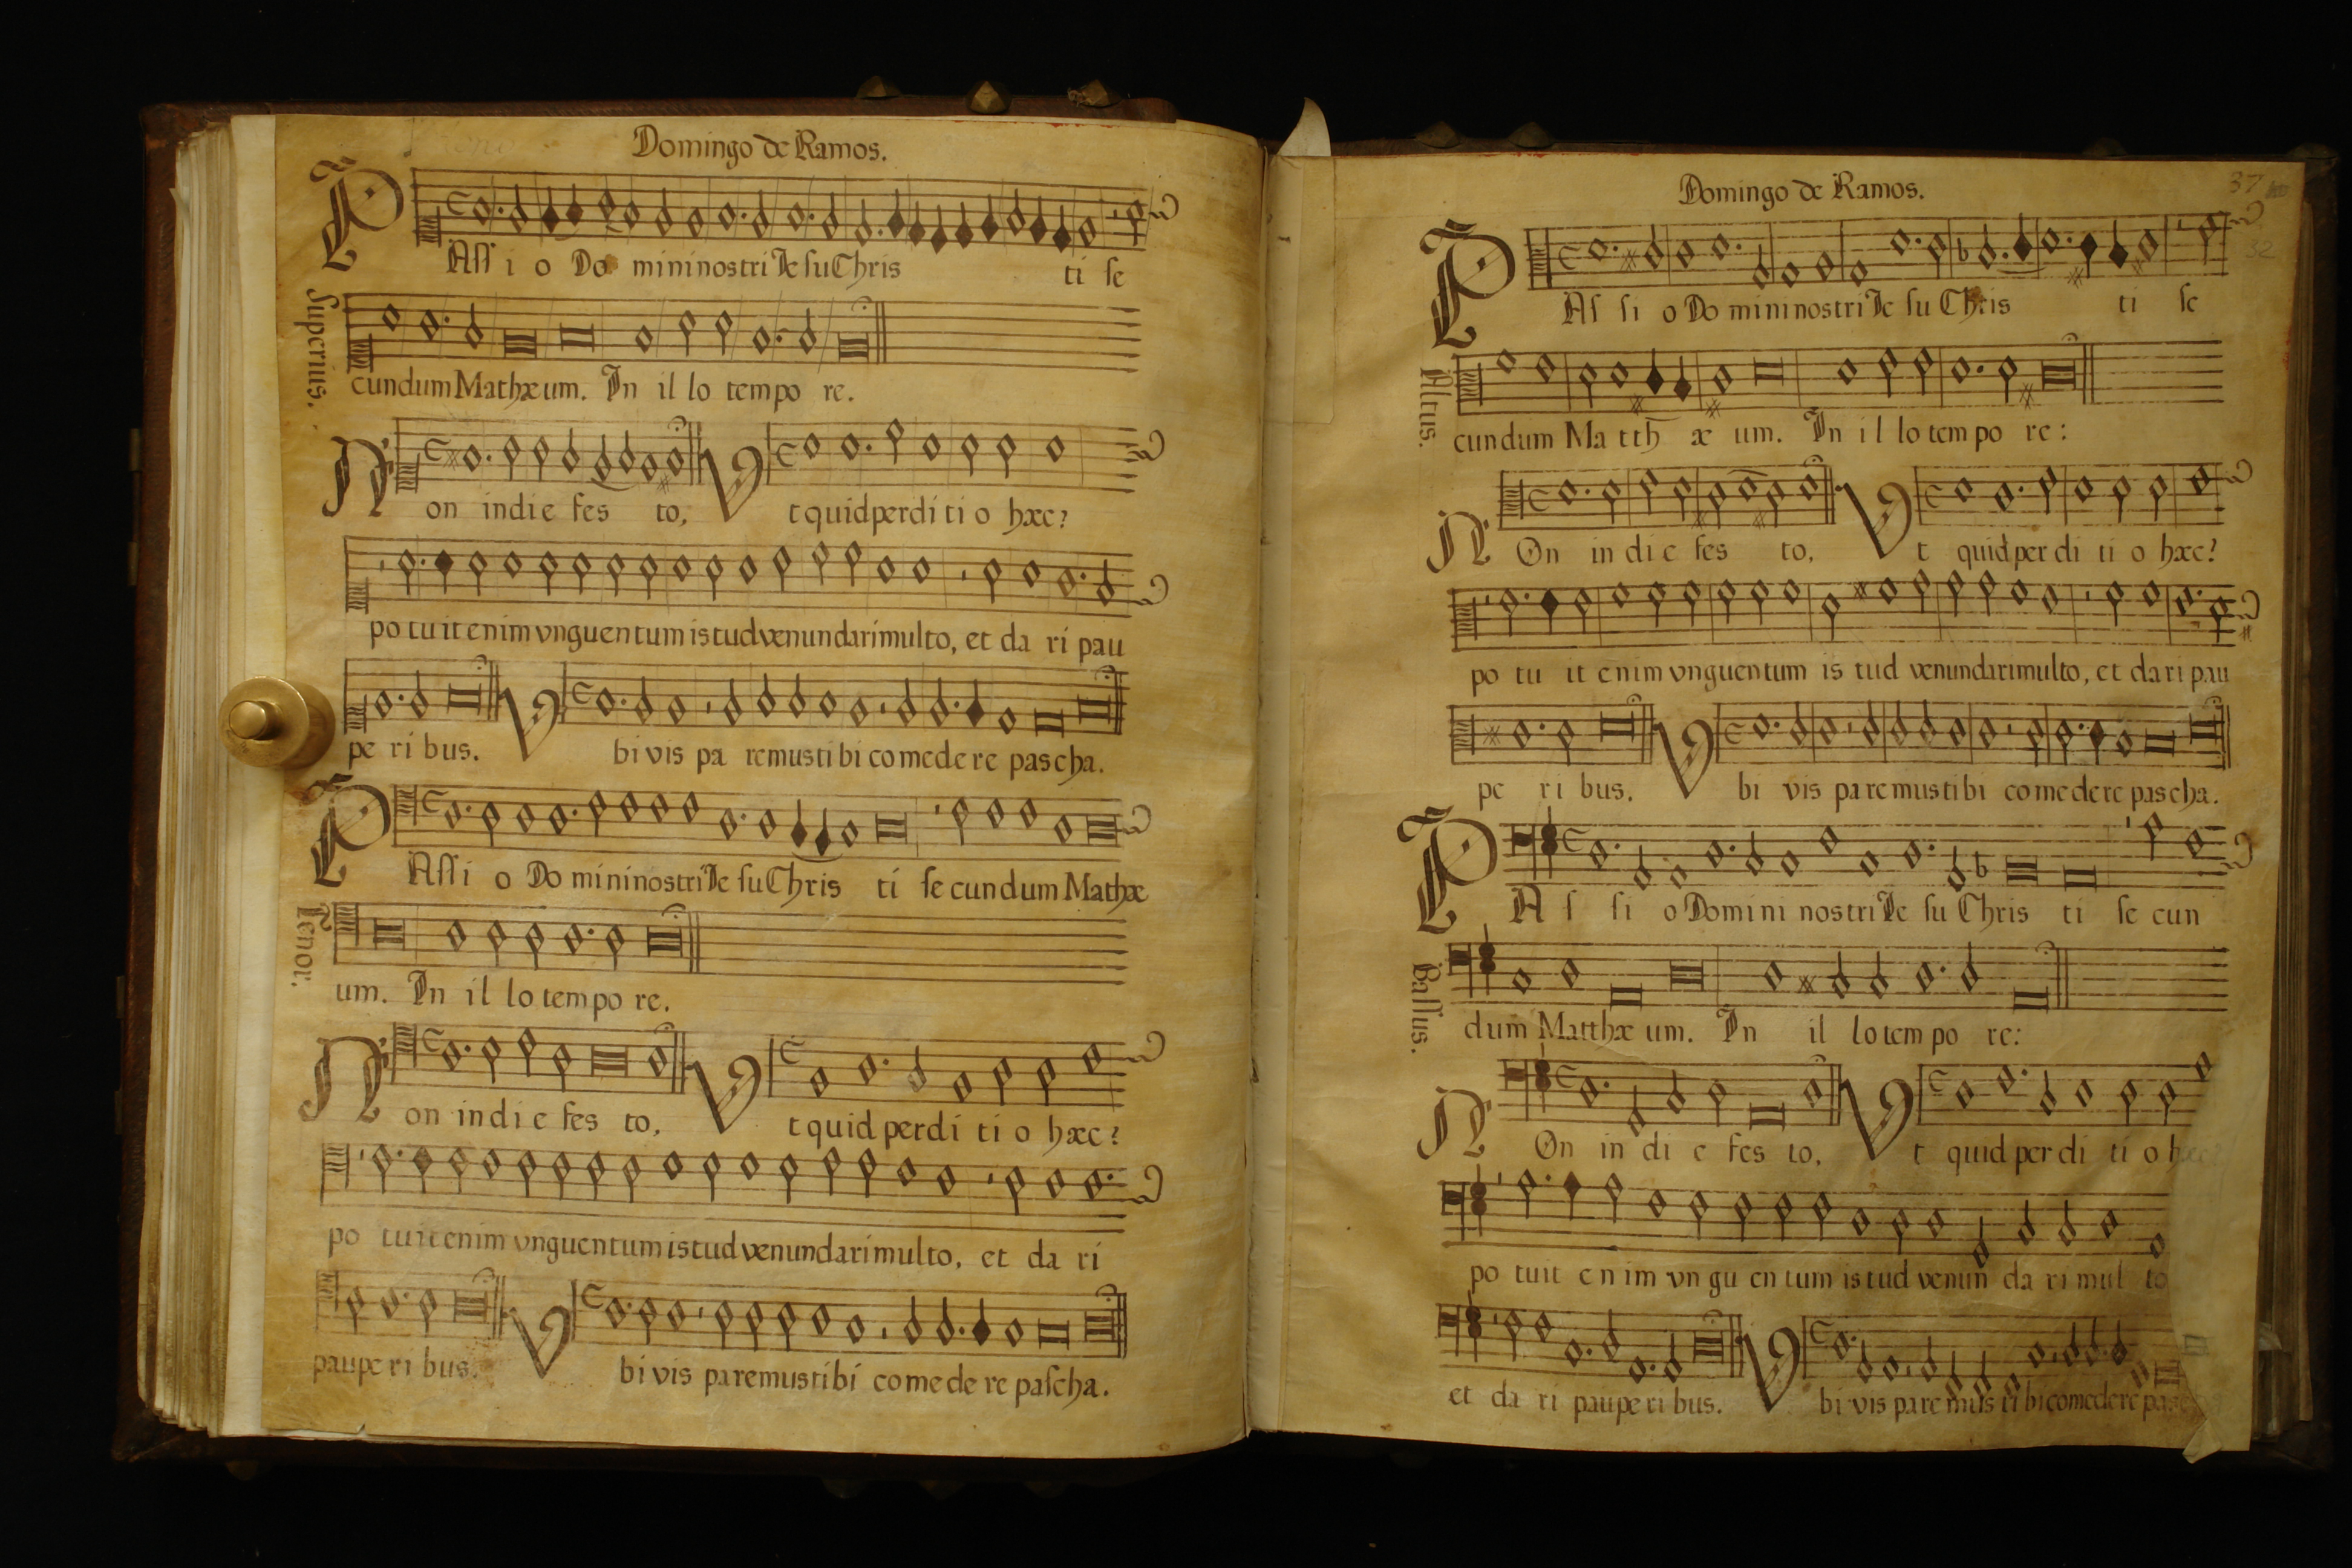 Domingo de Ramos.
PAſſ i o Do mini nostri Je ſu Chris ti ſe
Superius.
cundum Mathæum. In il lo tempo re.
Non indie fes to, Vt quid perdi ti o hæc?
po tu it enim vnguentum istud venundari multo, et da ri pau
pe ri bus. Vbi vis pa remus ti bi comede re pascha.
PAſſi o Do mini nostri Je ſu Chris ti ſe cundum Mathæ
Tenor.
um. In il lo tempo re.
Non indi e fes to, Vt quid perdi ti o hæc?
po tuit enim vnguentum istud venundari multo, et da ri
paupe ri bus. Vbi vis paremus tibi co me de re paſcha.
Domingo de Ramos.
37
32
PAſ ſi o Do mini nostri Je ſu Chris ti ſe
Altus.
cundum Ma tth æ um. In il lo tem po re:
NOn in di e fes to, Vt quid per di ti o hæc?
po tu it enim vnguentum is tud venundari multo, et da ri pau
pe ri bus. Vbi vis paremus tibi comedere pascha.
PA ſ ſi o Domini nostri Je ſu Chris ti ſe cun
Baſſus.
dum Matthæ um. In il lo tem po re:
NOn in di e fes to, Vt quid per di ti o hæc?
po tuit en im vn gu en tum is tud venun da ri mul to
et da ri paupe ri bus. Vbi vis pare mus ti bi comedere